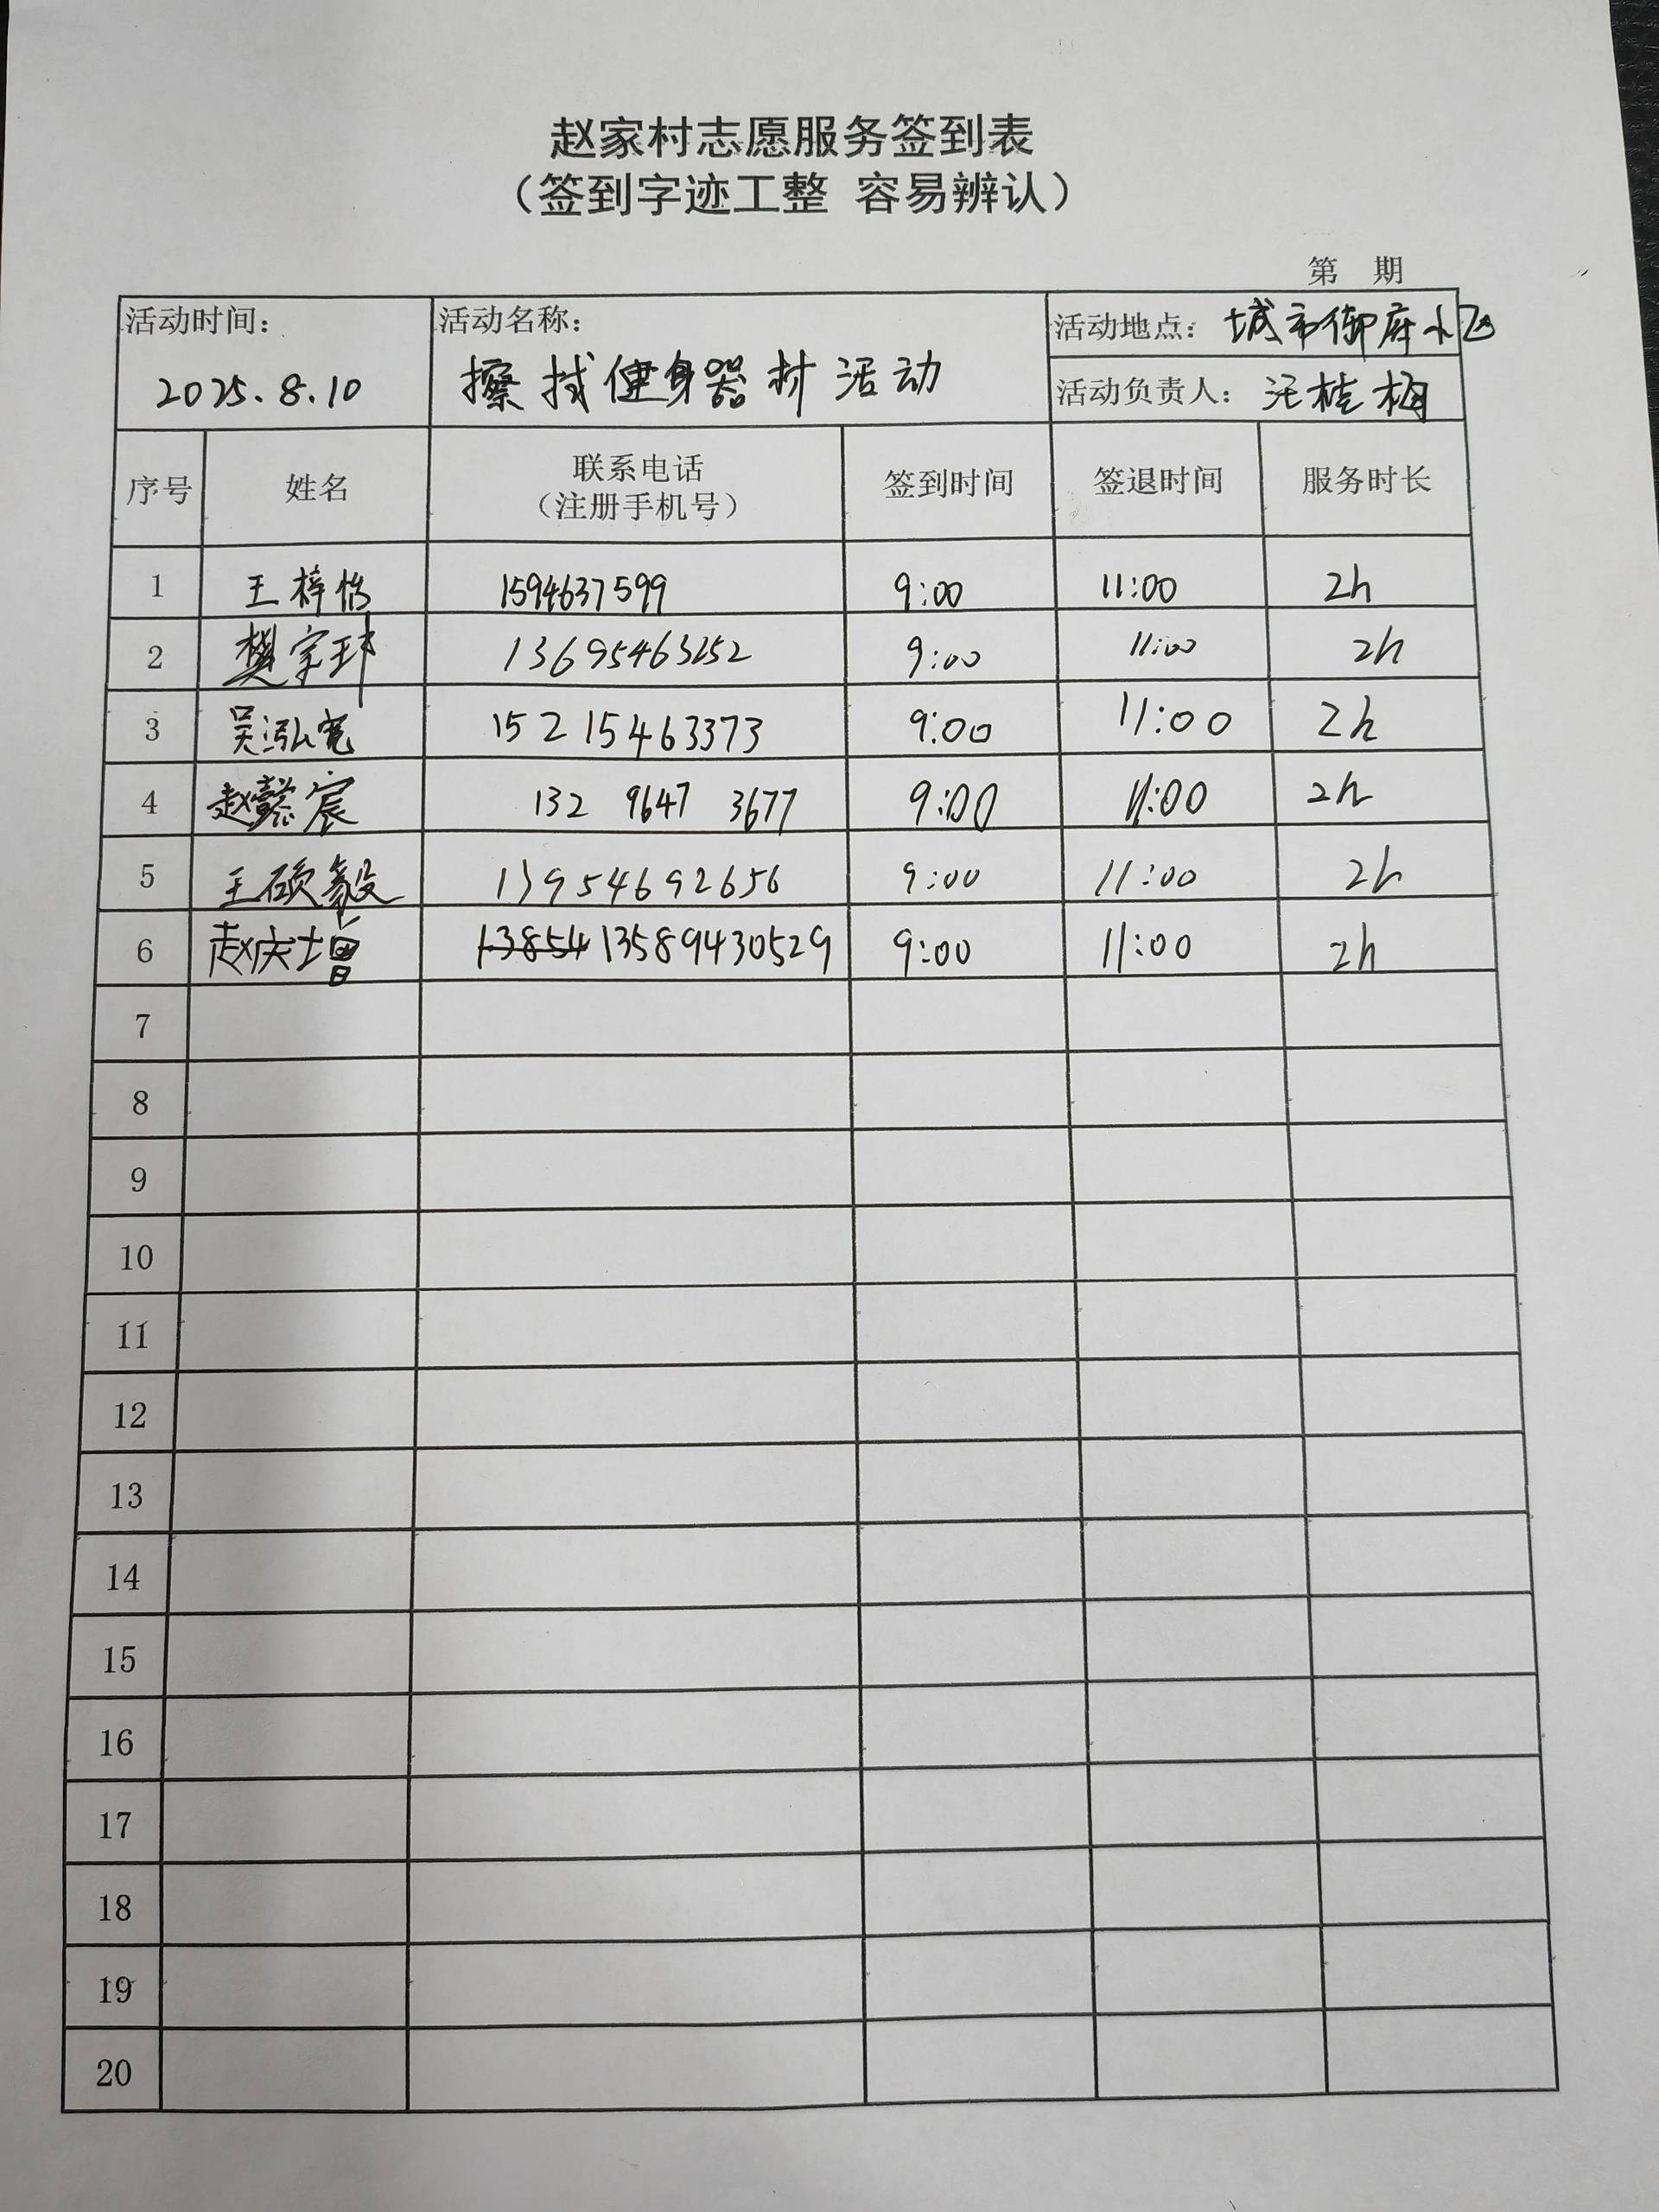 赵家村志愿服务签到表
（签到字迹工整 容易辨认）
第 期
活动时间： 活动名称： 活动地点：城市御府小区
2025.8.10 擦拭健身器材活动 活动负责人：汪桂梅
序号 姓名 联系电话（注册手机号） 签到时间 签退时间 服务时长
1 王梓怡 1594637599 9:00 11:00 2h
2 樊宇玮 13695463252 9:00 11:00 2h
3 吴泓宽 15215463373 9:00 11:00 2h
4 赵懿宸 132 9647 3677 9:00 11:00 2h
5 王硕毅 13954692656 9:00 11:00 2h
6 赵庆增 13854 13589430529 9:00 11:00 2h
7
8
9
10
11
12
13
14
15
16
17
18
19
20